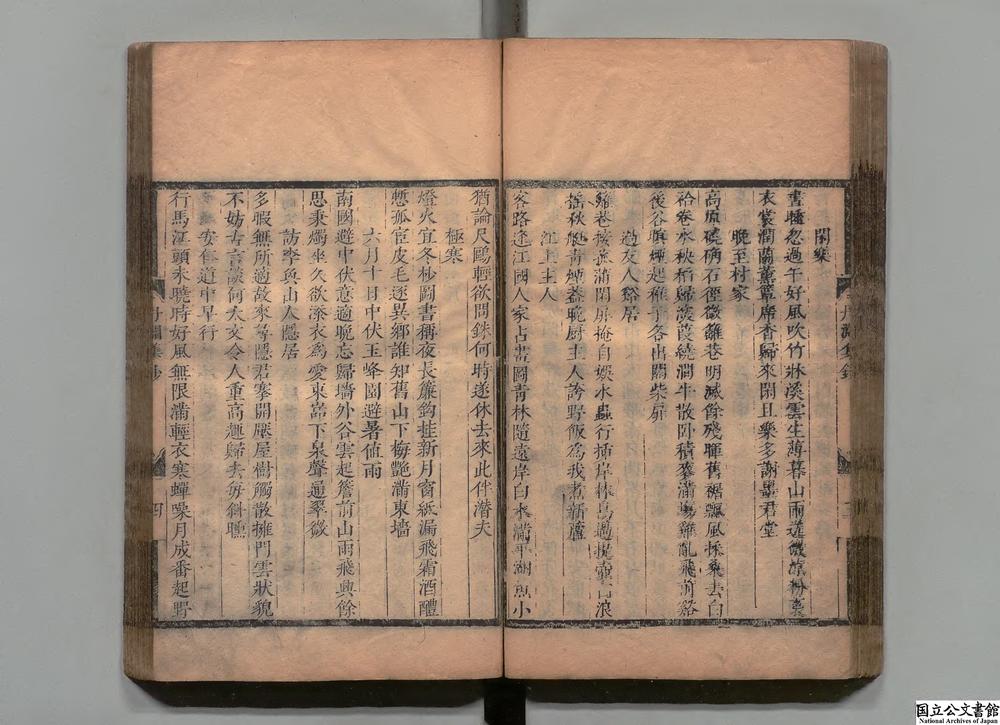 閑樂
書睡忽過午好風吹竹牀溪雲生薄暮山雨送微涼枕裏
衣裳潤蘭薰簟席香歸來閑且樂多謝墨君堂
晚至村家
高原磽确石徑微籬巷明滅餘殘暉舊裾飄風採桑去白
袷卷水秧稻歸深葭繞澗牛散臥積麥滿場雞亂飛前谿
後谷暝煙起稚子各出關柴扉
過友人谿居
籬巷接菰蒲閒扉掩自娛水蟲行插岸林鳥過提壺白浪
搖秋艇青煙蓋晚厨主人誇野飯為我煮新蘆
江上主人
客路逢江國人家占畫圖青林隨遠岸白水滿平湖魚小
猶論尺鷗輕欲問銖何時遂休去來此伴潛夫
極寒
燈火宜冬杪圖書稱夜長簾鈎挂新月窗紙漏飛霜酒醴
慙孤宦皮毛逐異鄉誰知舊山下梅艷滿東墻
六月十日中伏玉峰園避暑值雨
南國避中伏意適晚忘歸墻外谷雲起簷前山雨飛興餘
思秉燭坐久欲添衣為愛東嵓下泉聲通翠微
訪李員山人隱居
多暇無所適故來尋隱君搴開壓屋樹觸散擁門雲狀貌
不妨古言談何太文令人重高趣歸去每斜曛
安仁道中早行
行馬江頭未曉時好風無限滿輕衣寒蟬噪月成番起野
丹淵集鈔
四
国立公文書館
National Archives of Japan